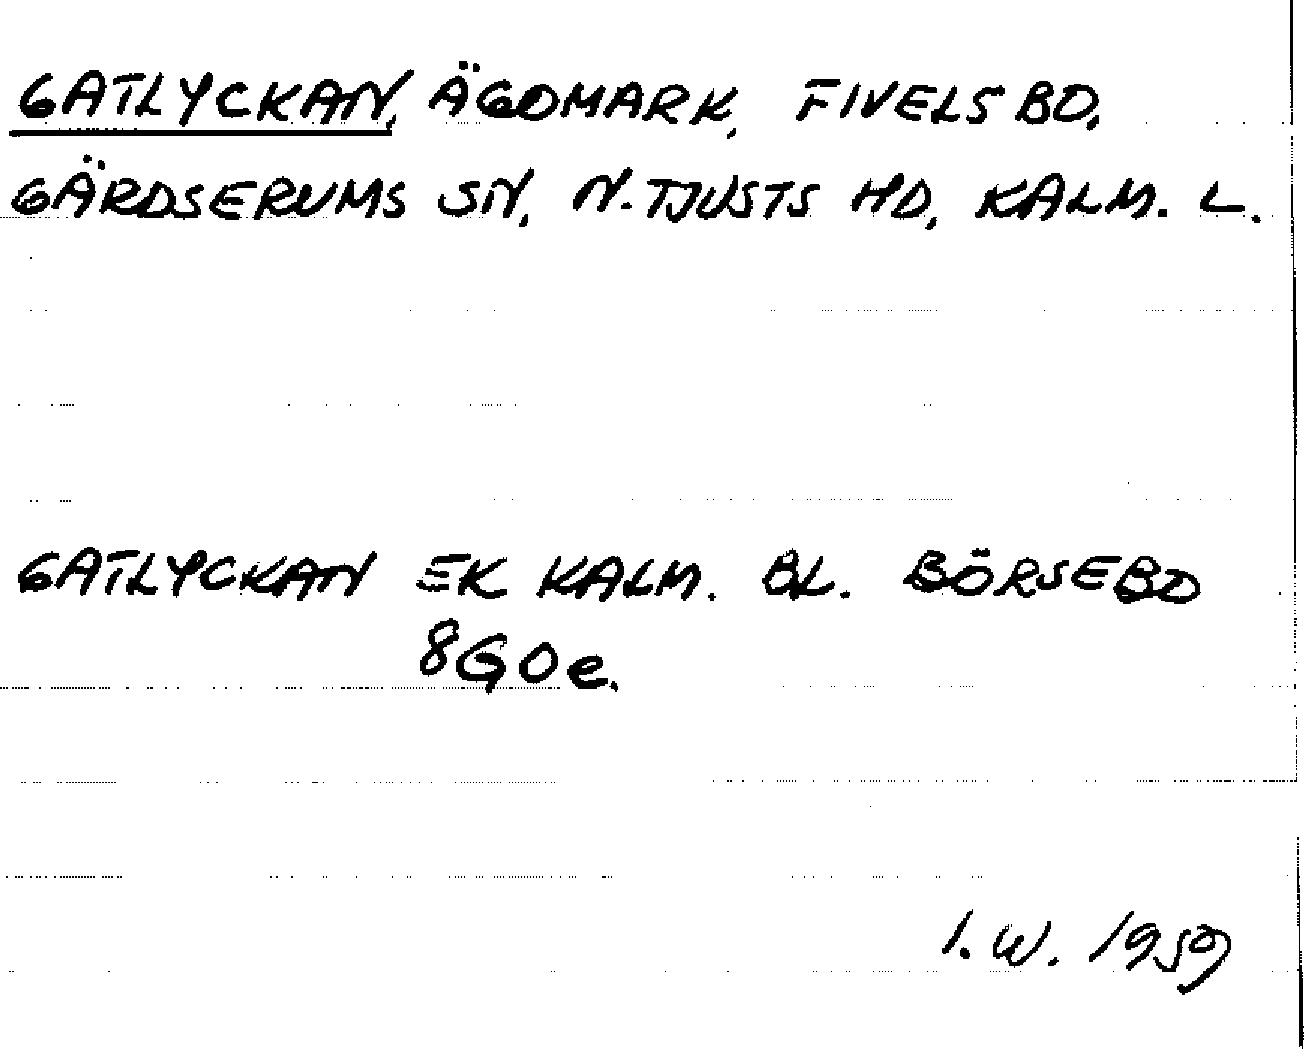 GATLYCKAN, ÄGOMARK, FIVELSBO,
GÄRDSERUMS SN, N. TJUSTS HD, KALM. L.
GATLYCKAN EK KALM. BL. BÖRSEBO
8G0e.
I. W. 1959